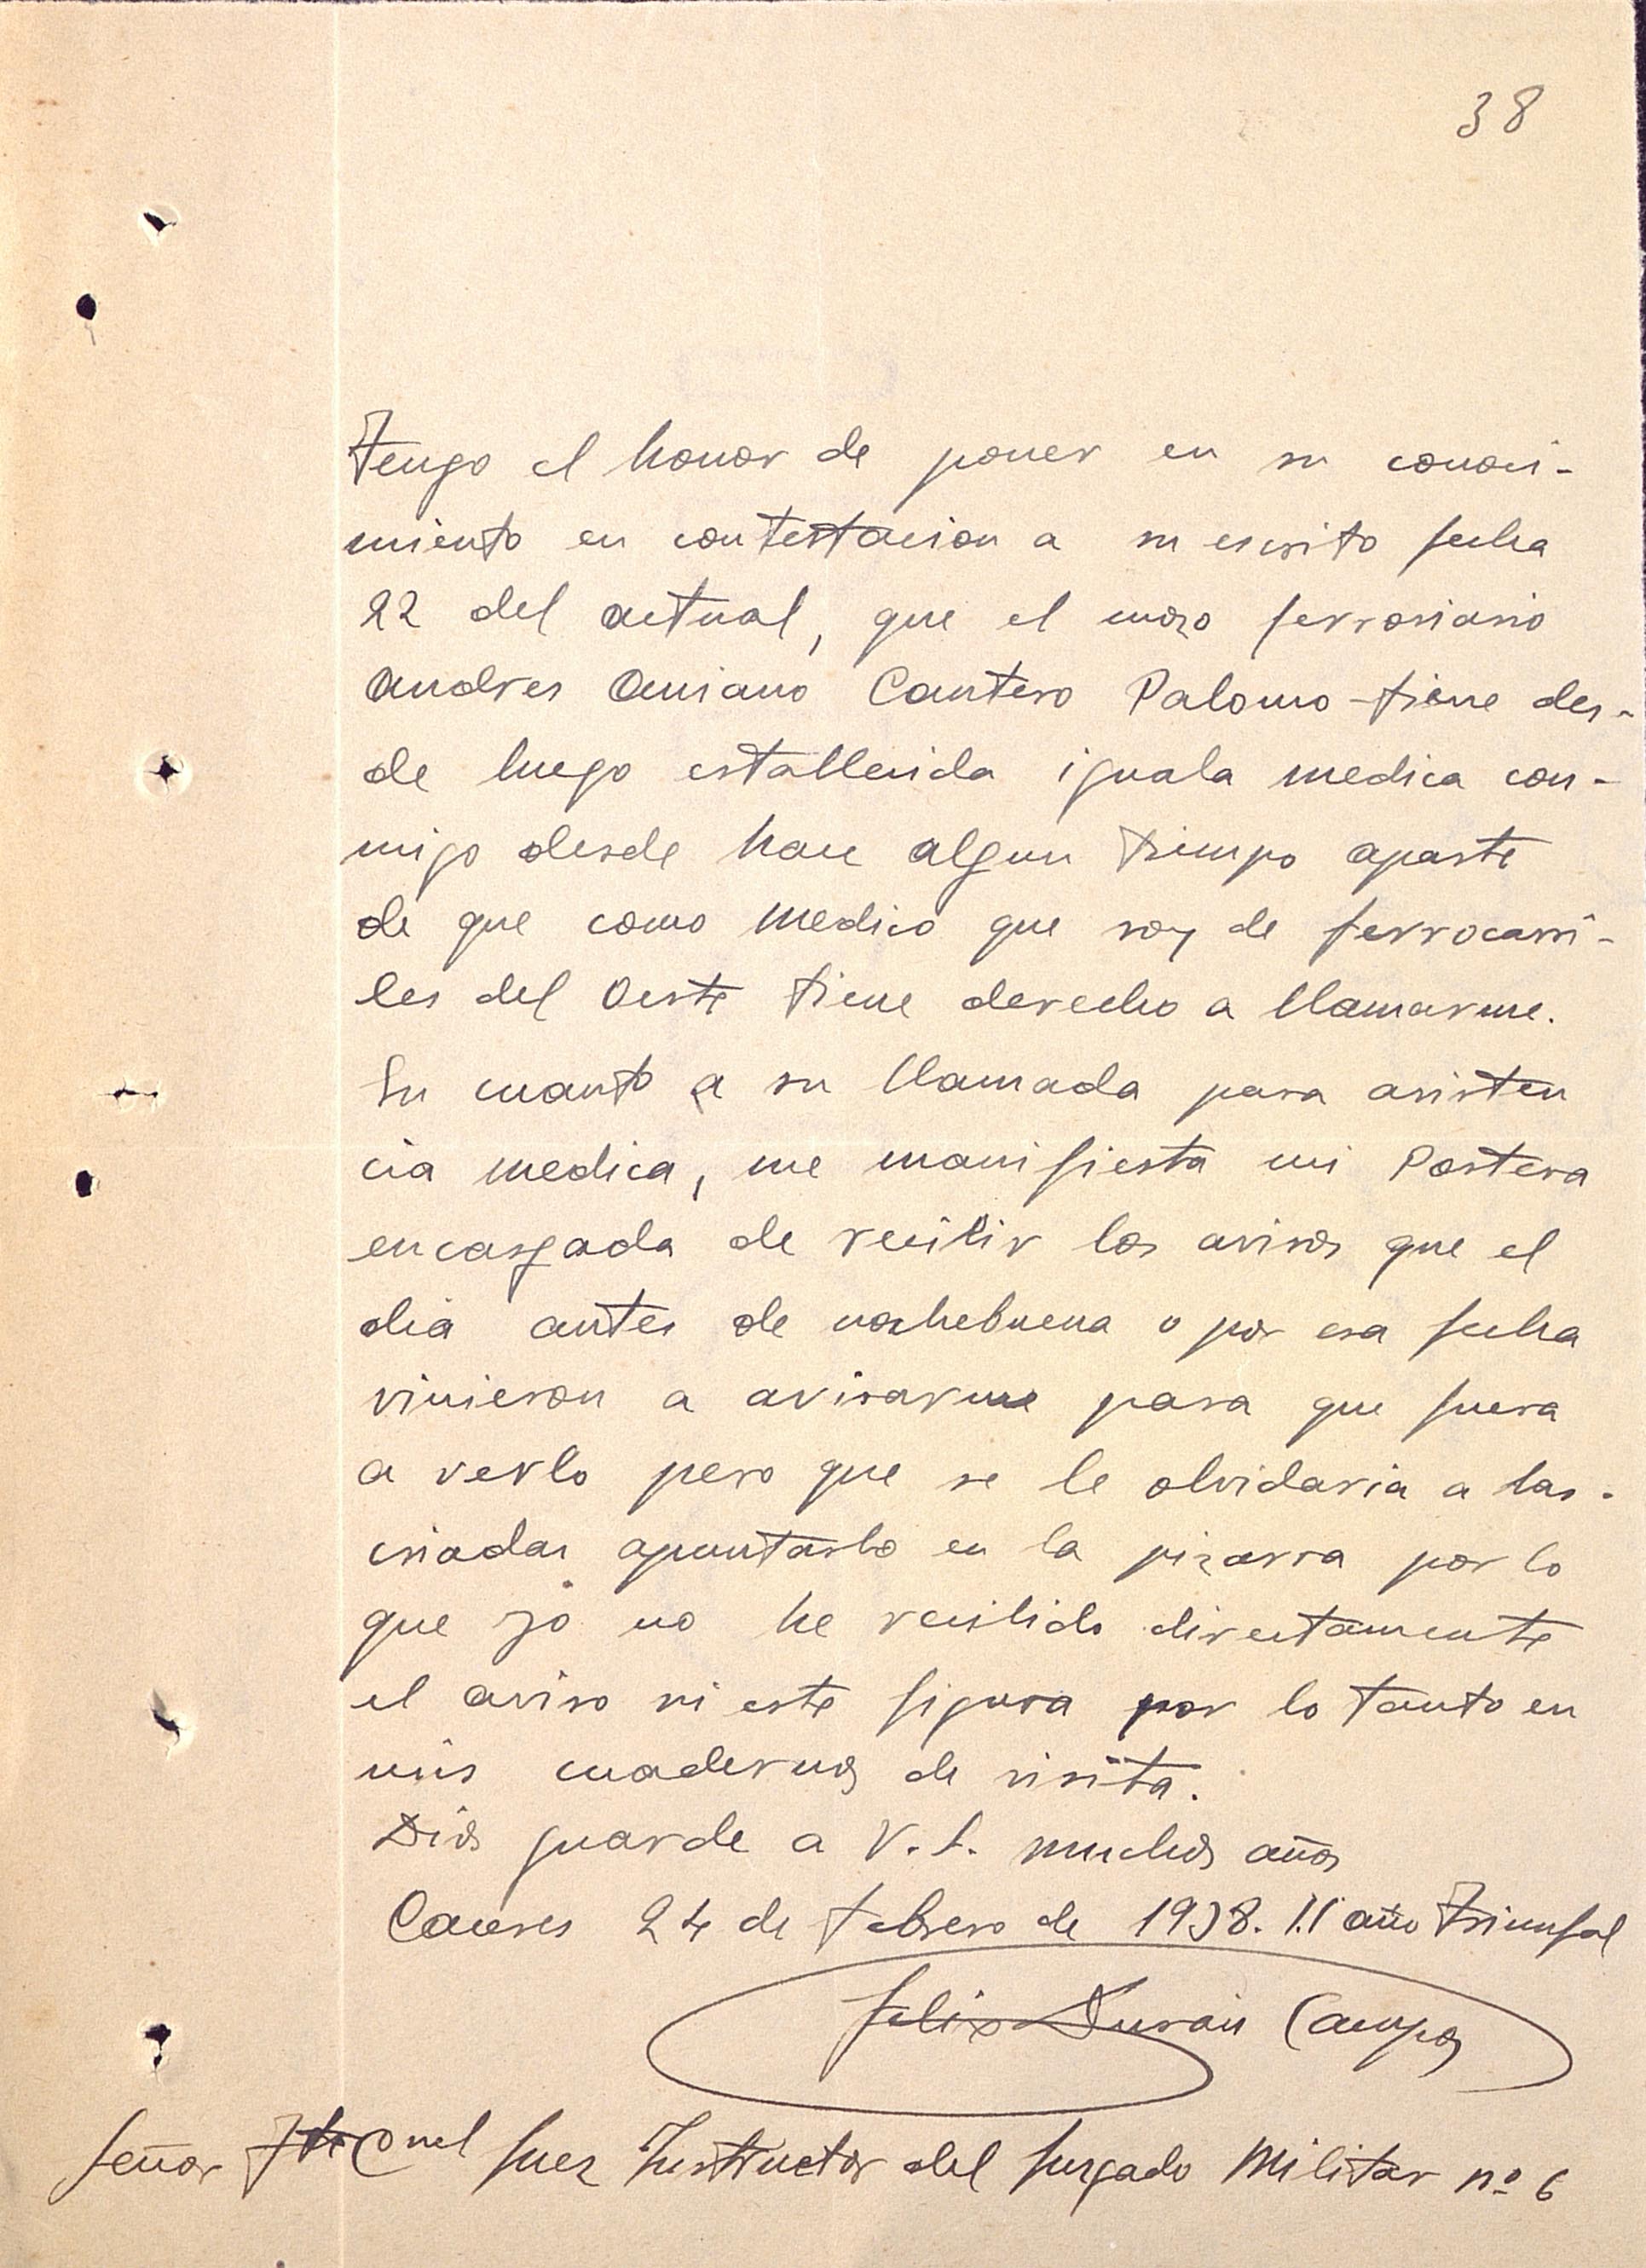 38
Tengo el honor de poner en su conoci-
miento en contestacion a su escrito fecha
22 del actual, que el mozo ferroviario
Andres Aniano Cantero Palomo tiene des-
de luego establecida iguala medica con-
migo desde hace algun tiempo aparte
de que como medico que soy de ferrocarri-
les del Oeste tiene derecho a llamarme.
En cuanto a su llamada para asisten
cia medica, me manifiesta mi Portera
encargada de recibir los avisos que el
dia antes de nochebuena o por esa fecha
vinieron a avisarme para que fuera
a verlo pero que se le olvidaria a las
criadas apuntarlo en la pizarra por lo
que yo no he recibido directamente
el aviso ni este figura por lo tanto en
mis cuadernos de visita.
Dios guarde a V.S. muchos años
Caceres 24 de febrero de 1938. II año Triunfal
Felix Durán Campos
Señor Tte Conel Juez Instructor del Juzgado Militar nº 6